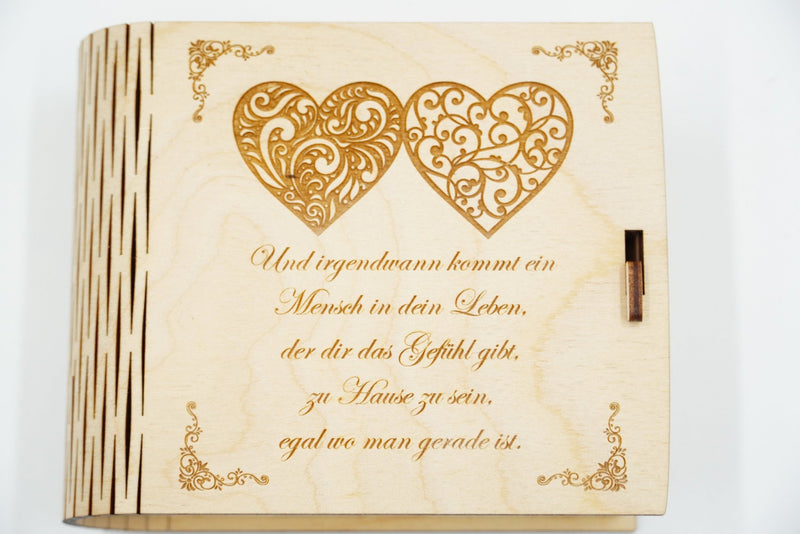 Und irgendwann kommt ein
Mensch in dein Leben,
der dir das Gefühl gibt,
zu Hause zu sein,
egal wo man gerade ist.